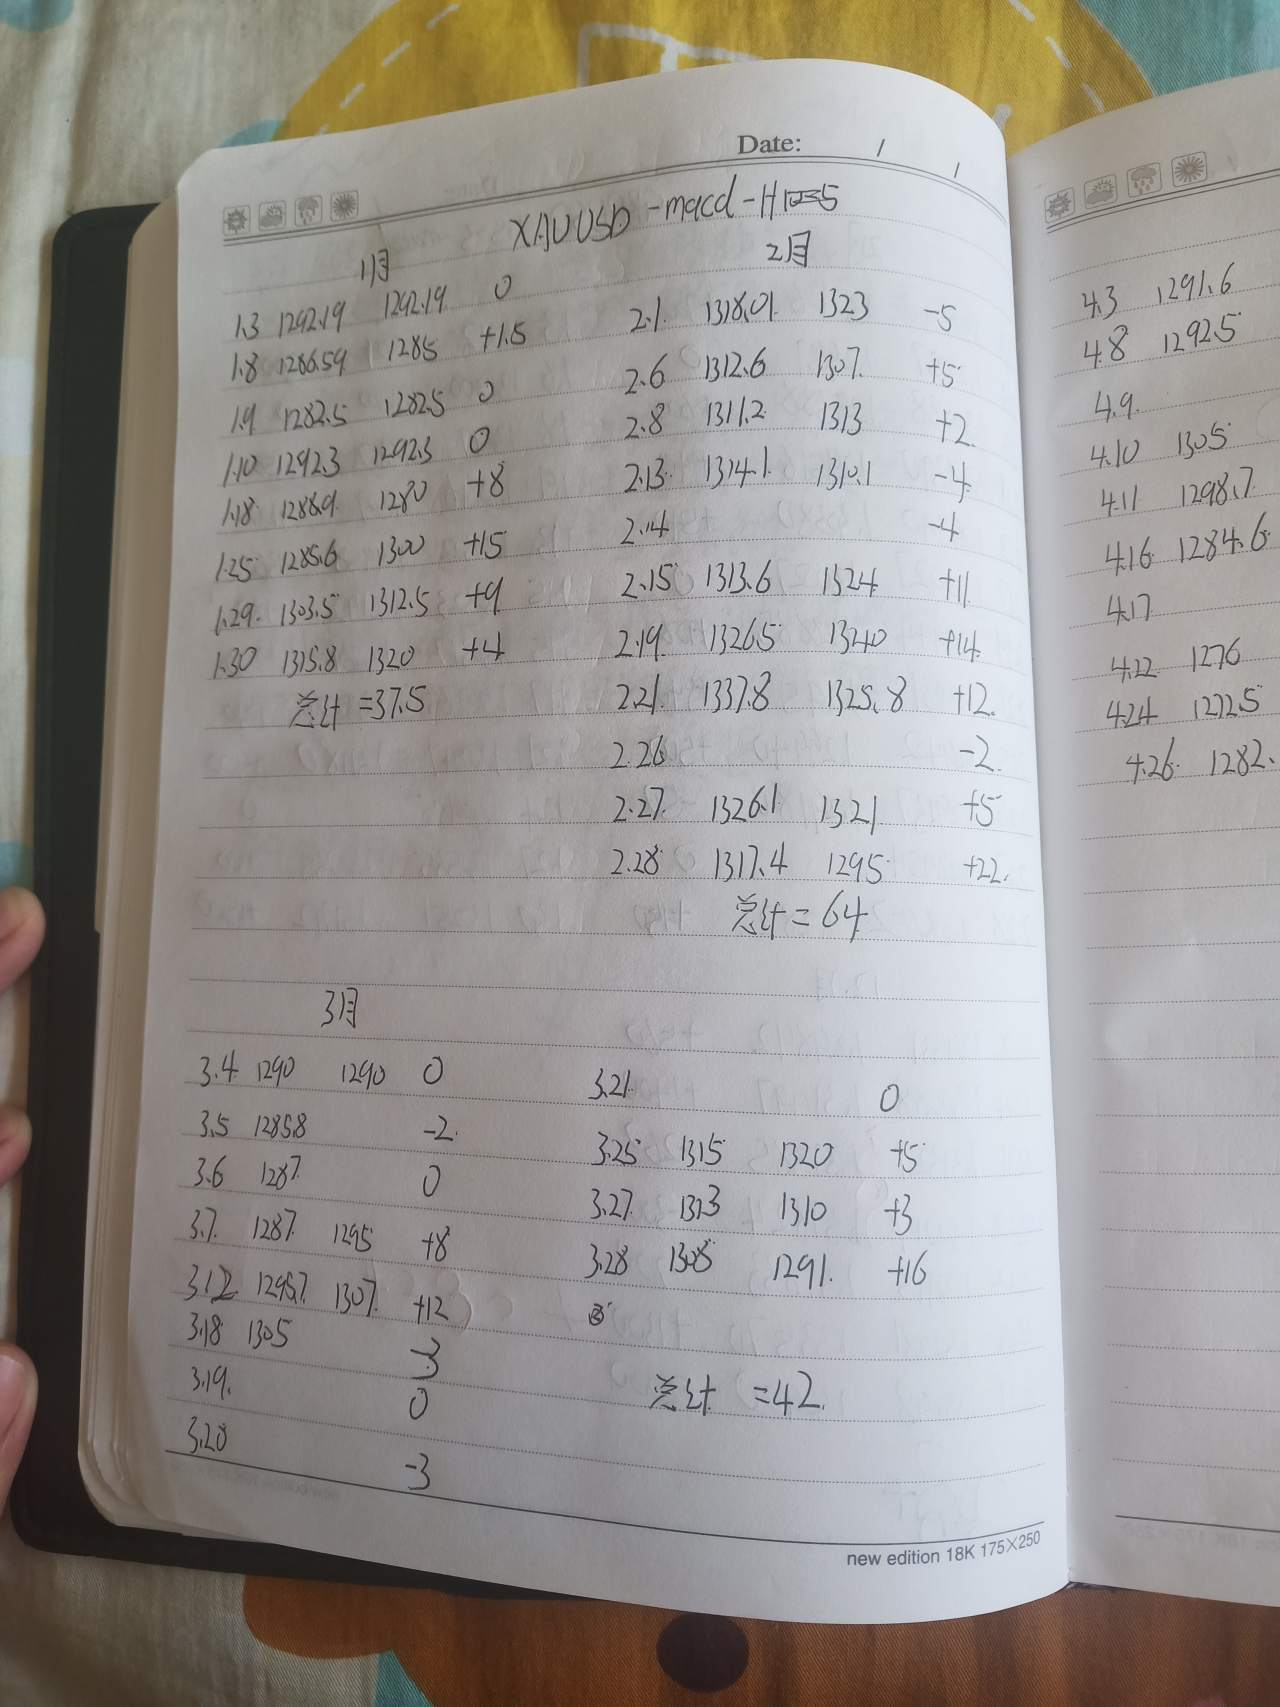 Date: / /
XAUUSD -macd-H1
1月
1.3 1292.19 1292.19 0
1.8 1286.59 1285 +1.5
1.9 1282.5 1282.5 0
1.10 1292.3 1292.3 0
1.18 1288.9 1280 +8
1.25 1285.6 1300 +15
1.29. 1303.5 1312.5 +9
1.30 1315.8 1320 +4
总计 =37.5
2月
2.1. 1318.01 1323 -5
2.6 1312.6 1307. +5
2.8 1311.2 1313 +2.
2.13. 1314.1 1310.1 -4
2.14 -4
2.15 1313.6 1324 +11.
2.19. 1326.5 1340 +14.
2.21. 1337.8 1325.8 +12.
2.26 -2.
2.27. 1326.1 1321 +5
2.28 1317.4 1295 +22.
总计 = 64
3月
3.4 1290 1290 0
3.5 1285.8 -2.
3.6 1287. 0
3.7. 1287. 1295 +8
3.12 1295.7. 1307. +12
3.18 1305 -3
3.19. 0
3.20 -3
3.21. 0
3.25 1315 1320 +5
3.27. 1313 1310 +3
3.28 1308 1291. +16
总计 =42.
new edition 18K 175×250
4.3 1291.6
4.8 1292.5
4.9.
4.10 1305
4.11 1298.7
4.16 1284.6
4.17
4.22 1276
4.24 1272.5
4.26. 1282.